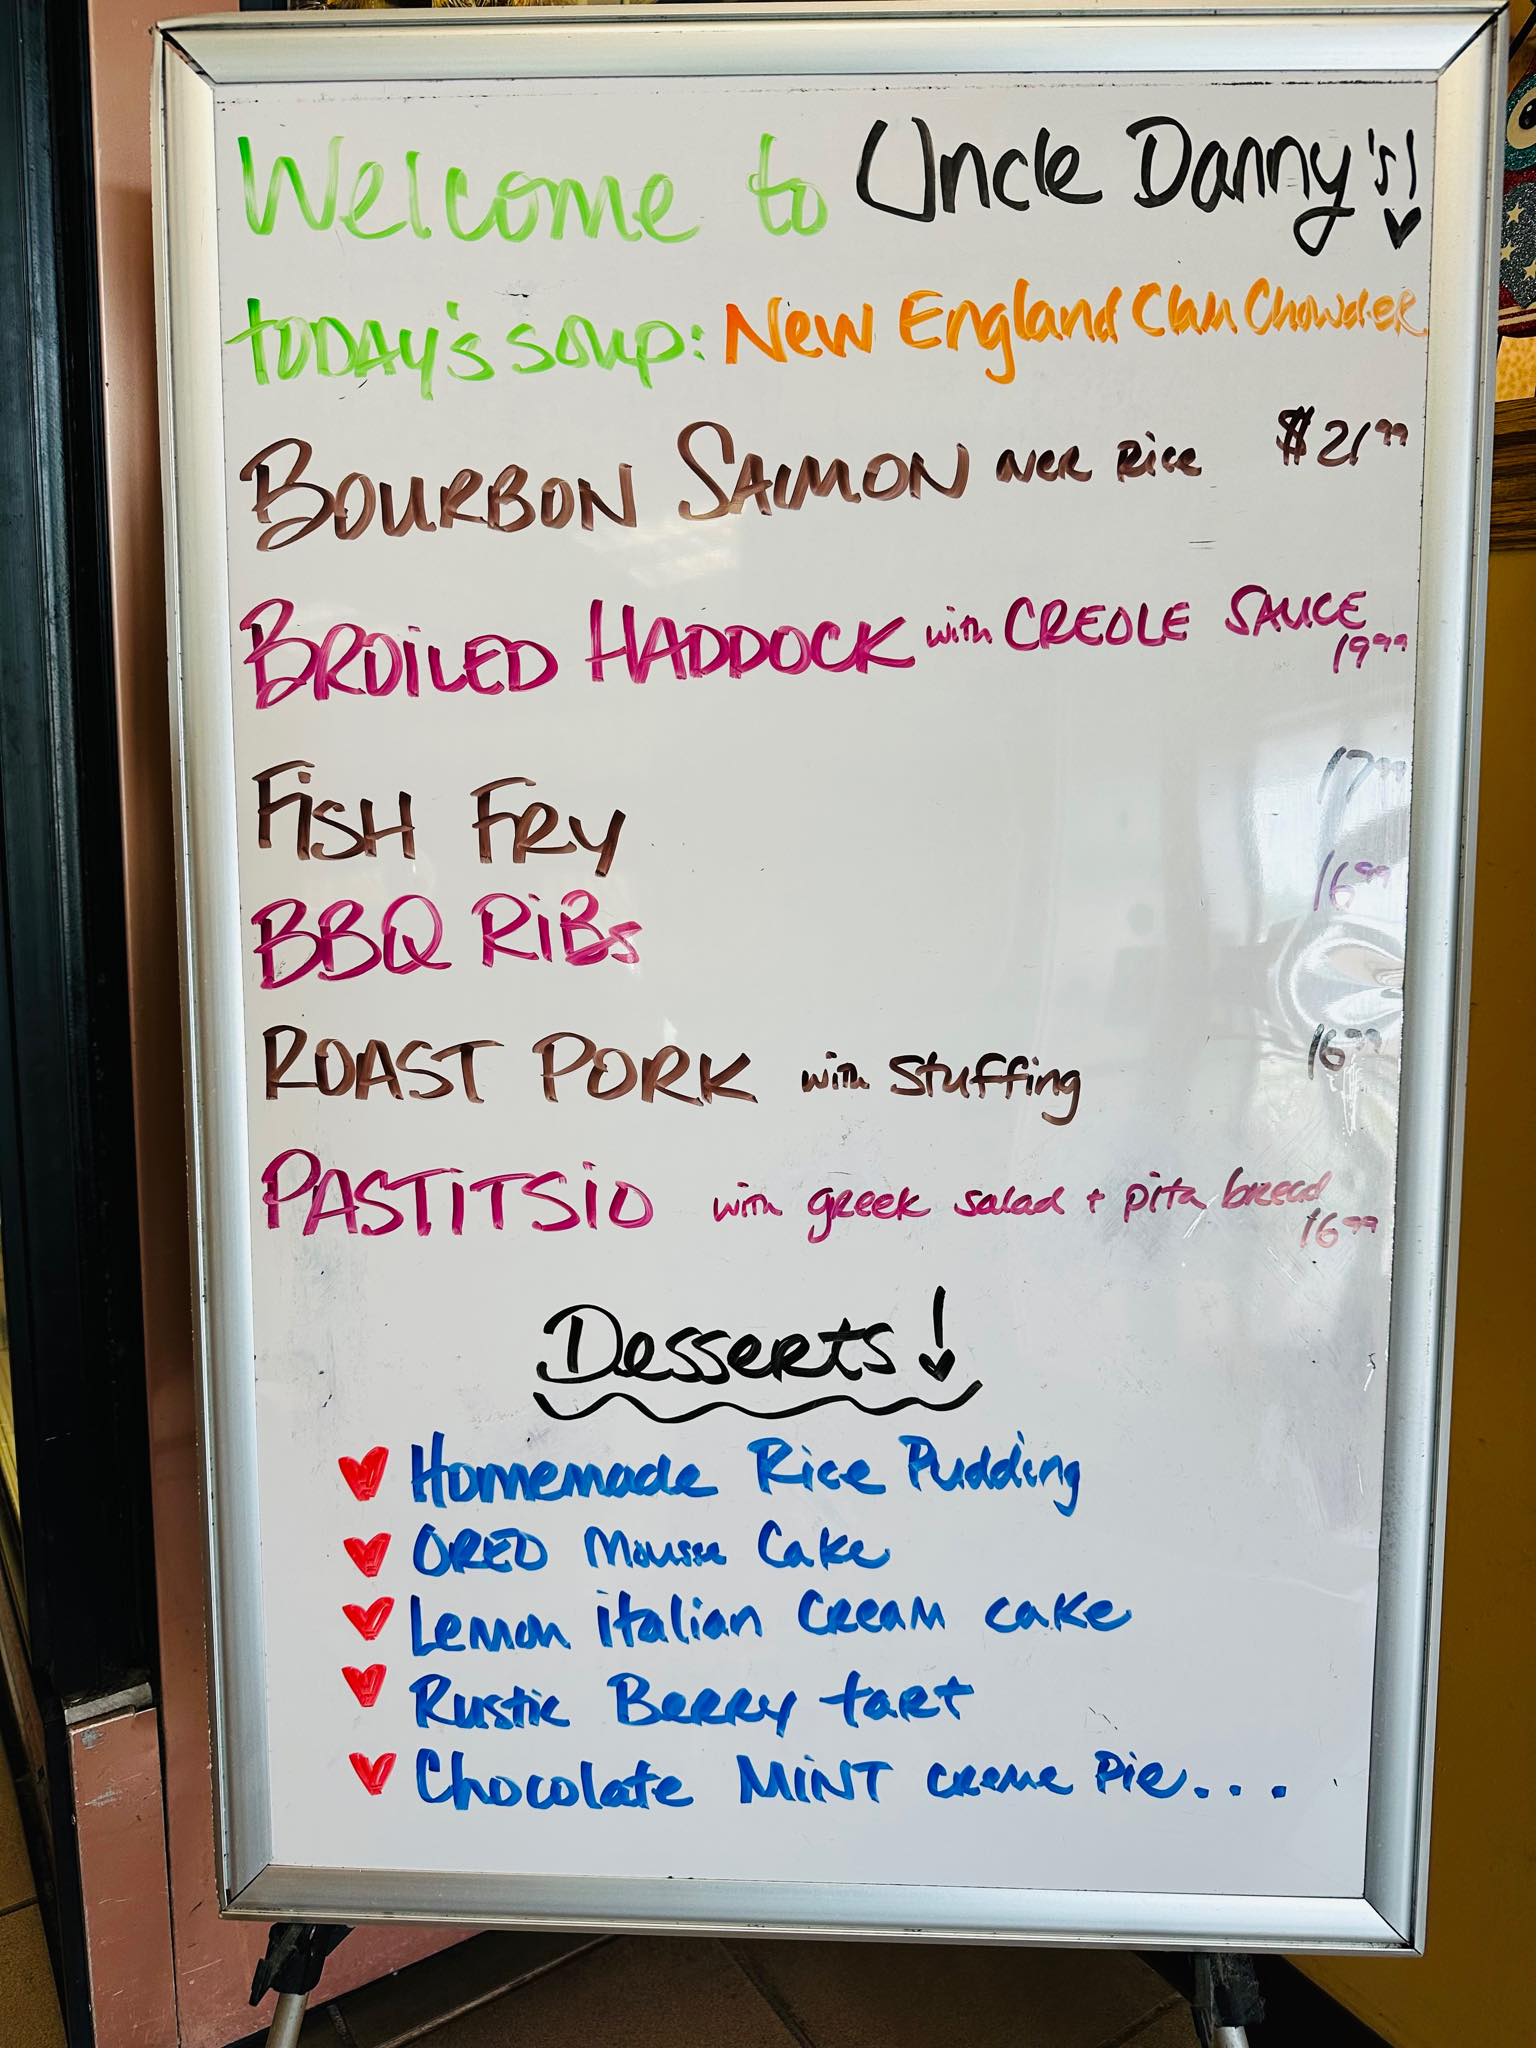 Welcome to Uncle Danny's!
TODAY'S SOUP: New England Clam Chowder
BOURBON SALMON over Rice $21.99
BROILED HADDOCK with CREOLE SAUCE
19.99
FISH FRY 17.99
BBQ RIBS 16.99
ROAST PORK with Stuffing 16.99
PASTITSIO with greek salad + pita bread
16.99
Desserts!
Homemade Rice Pudding
OREO Mousse Cake
Lemon italian CREAM cake
Rustic Berry tart
Chocolate MINT creme Pie...